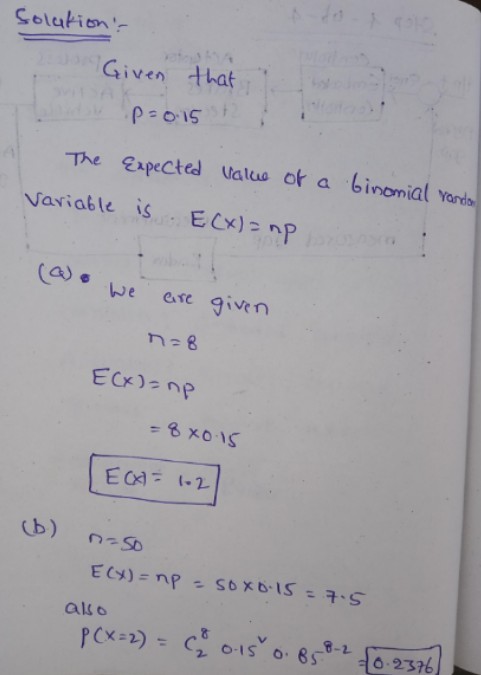 Solution:-
Given that
p = 0.15
The Expected value of a binomial random
variable is E(x) = np
(a). We are given
n = 8
E(x) = np
= 8 x 0.15
E(x) = 1.2
(b) n = 50
E(x) = np = 50 x 0.15 = 7.5
also
P(x=2) = C₂⁸ 0.15² 0.85⁸⁻² = 0.2376